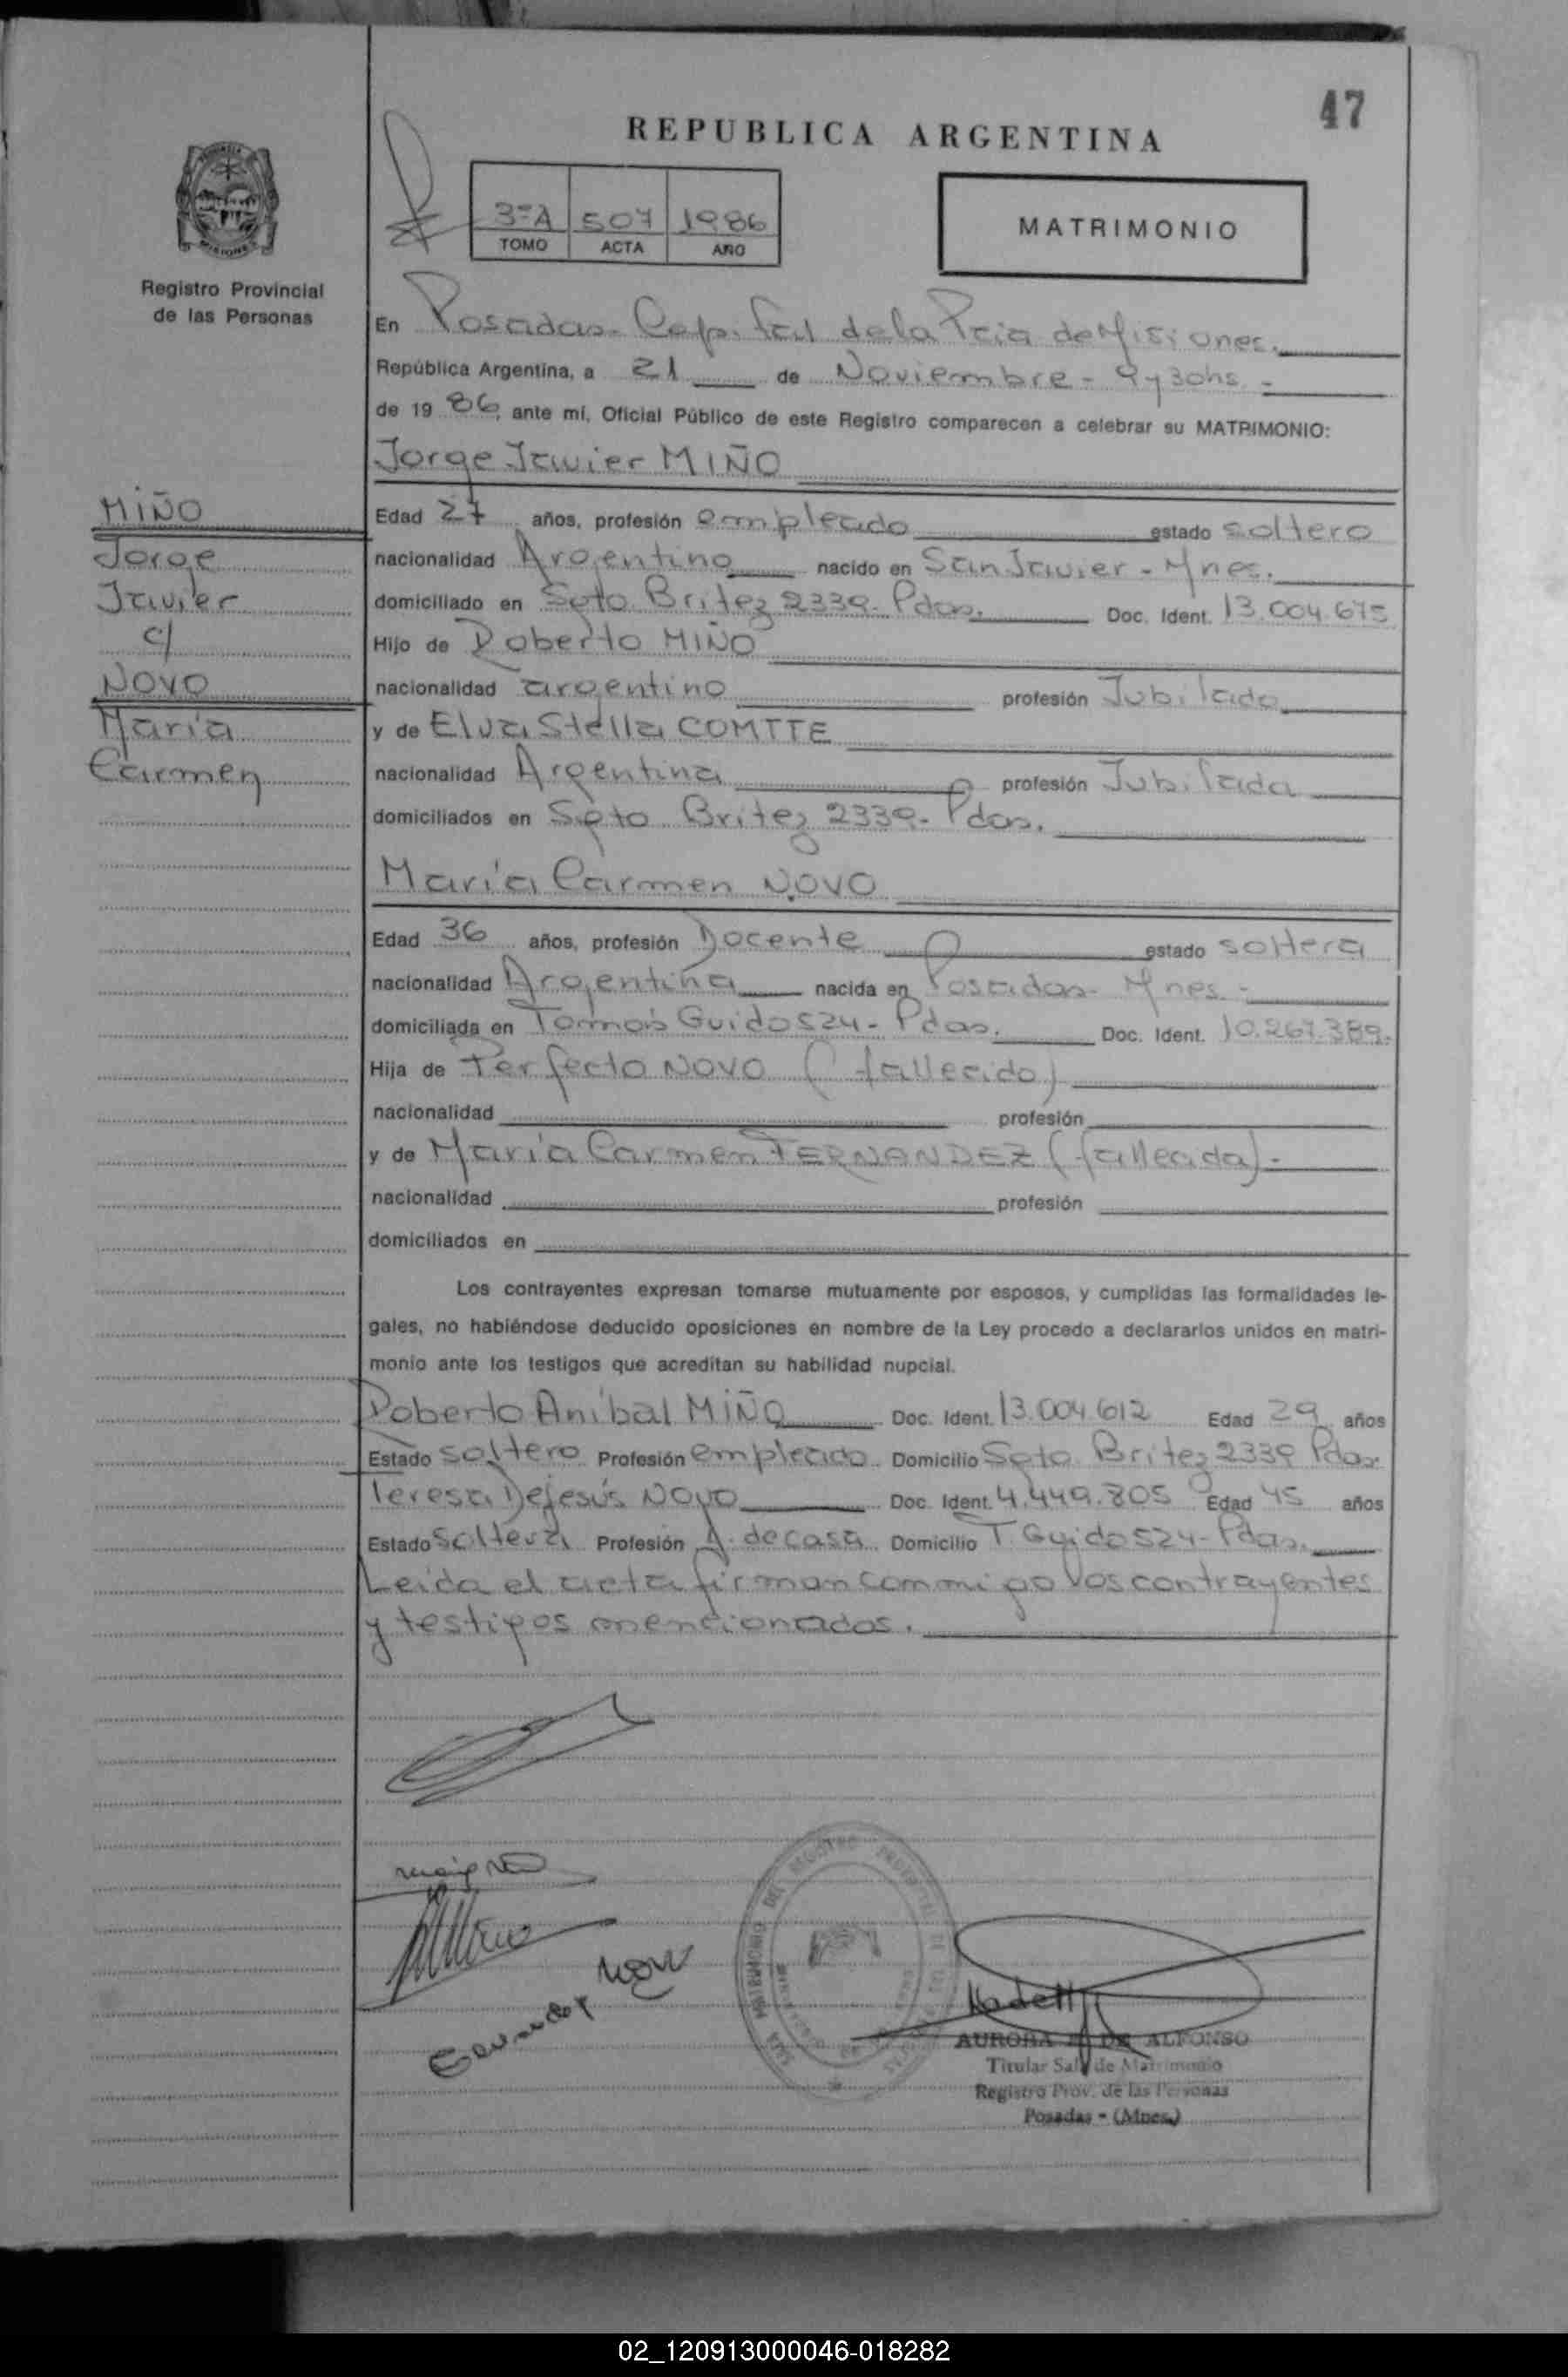 47
REPUBLICA ARGENTINA
3ºA 507 1986
TOMO ACTA AÑO
MATRIMONIO
MISIONES
Registro Provincial
de las Personas
En Posadas- Capital de la Pcia de Misiones.
República Argentina, a 21 de Noviembre - 9 y 30hs -
de 19 86, ante mí, Oficial Público de este Registro comparecen a celebrar su MATRIMONIO:
Jorge Javier MIÑO
Edad 27 años, profesión empleado estado soltero
nacionalidad Argentino nacido en San Javier - Mnes.
domiciliado en Soto Britez 2339- Pdas. Doc. Ident. 13.004.675
Hijo de Roberto MIÑO
nacionalidad argentino profesión Jubilado
y de Elva Stella COMTTE
nacionalidad Argentina profesión Jubilada
domiciliados en Soto Britez 2339- Pdas.
María Carmen NOVO
Edad 36 años, profesión Docente estado soltera
nacionalidad Argentina nacida en Posadas- Mnes -
domiciliada en Tomás Guido 524- Pdas. Doc. Ident. 10.267.389.
Hija de Perfecto NOVO (fallecido)
nacionalidad profesión
y de María Carmen FERNANDEZ (fallecida).-
nacionalidad profesión
domiciliados en
Los contrayentes expresan tomarse mutuamente por esposos, y cumplidas las formalidades le-
gales, no habiéndose deducido oposiciones en nombre de la Ley procedo a declararlos unidos en matri-
monio ante los testigos que acreditan su habilidad nupcial.
Roberto Aníbal MIÑO Doc. Ident. 13.004.612 Edad 29 años
Estado soltero Profesión empleado Domicilio Soto Britez 2339 Pdas
Teresa Dejesús NOVO Doc. Ident. 4.449.805 Edad 45 años
Estado soltera Profesión A. de casa Domicilio T. Guido 524- Pdas.
Leida el acta firman conmigo los contrayentes
y testigos mencionados.
MIÑO
Jorge
Javier
c/
NOVO
María
Carmen
SALA MATRIMONIO DEL REGISTRO PROVINCIAL DE LAS PERSONAS
AURORA DE ALFONSO
Titular Sala de Matrimonio
Registro Prov. de las Personas
Posadas - (Mnes.)
02_120913000046-018282